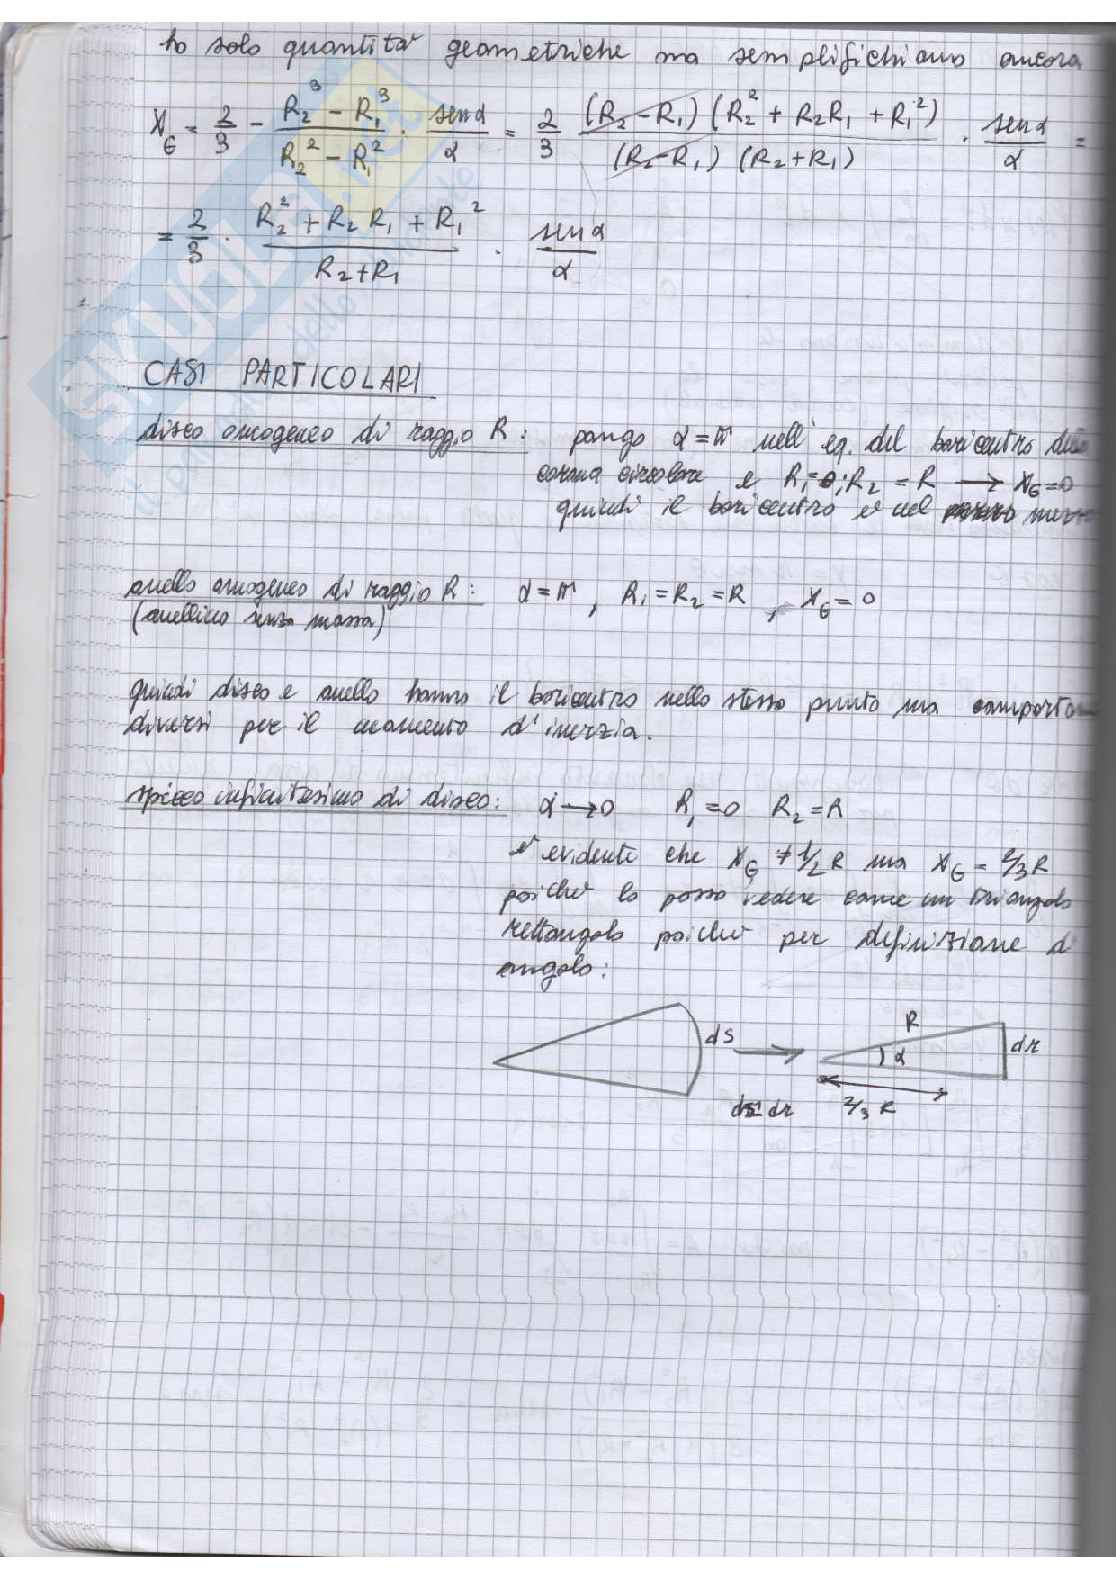 to solo quantità geometriche ma semplifichiamo ancora
X_G = 2/3 - (R_2^3 - R_1^3)/(R_2^2 - R_1^2) · sen α/α = 2/3 (R_2 - R_1)(R_2^2 + R_2R_1 + R_1^2)/(R_2 - R_1)(R_2 + R_1) · sen α/α =
= 2/3 · (R_2^2 + R_2 R_1 + R_1^2)/(R_2 + R_1) · sen α/α
CASI PARTICOLARI
disco omogeneo di raggio R: pongo α = π nell'eq. del baricentro della
corona circolare e R_1 = 0; R_2 = R → X_G = 0
quindi il baricentro è nel
anello omogeneo di raggio R: α = π, R_1 = R_2 = R, X_G = 0
(anellino senza massa)
quindi disco e anello hanno il baricentro nello stesso punto ma comportam
diversi per il momento d'inerzia.
spicco infinitesimo di disco: α → 0 R_1 = 0 R_2 = R
è evidente che X_G ≠ 1/2 R ma X_G = 2/3 R
poiché lo posso vedere come un triangolo
rettangolo poiché per definizione di
angolo:
dS → R α dr
2/3 R
SKUOLA.net